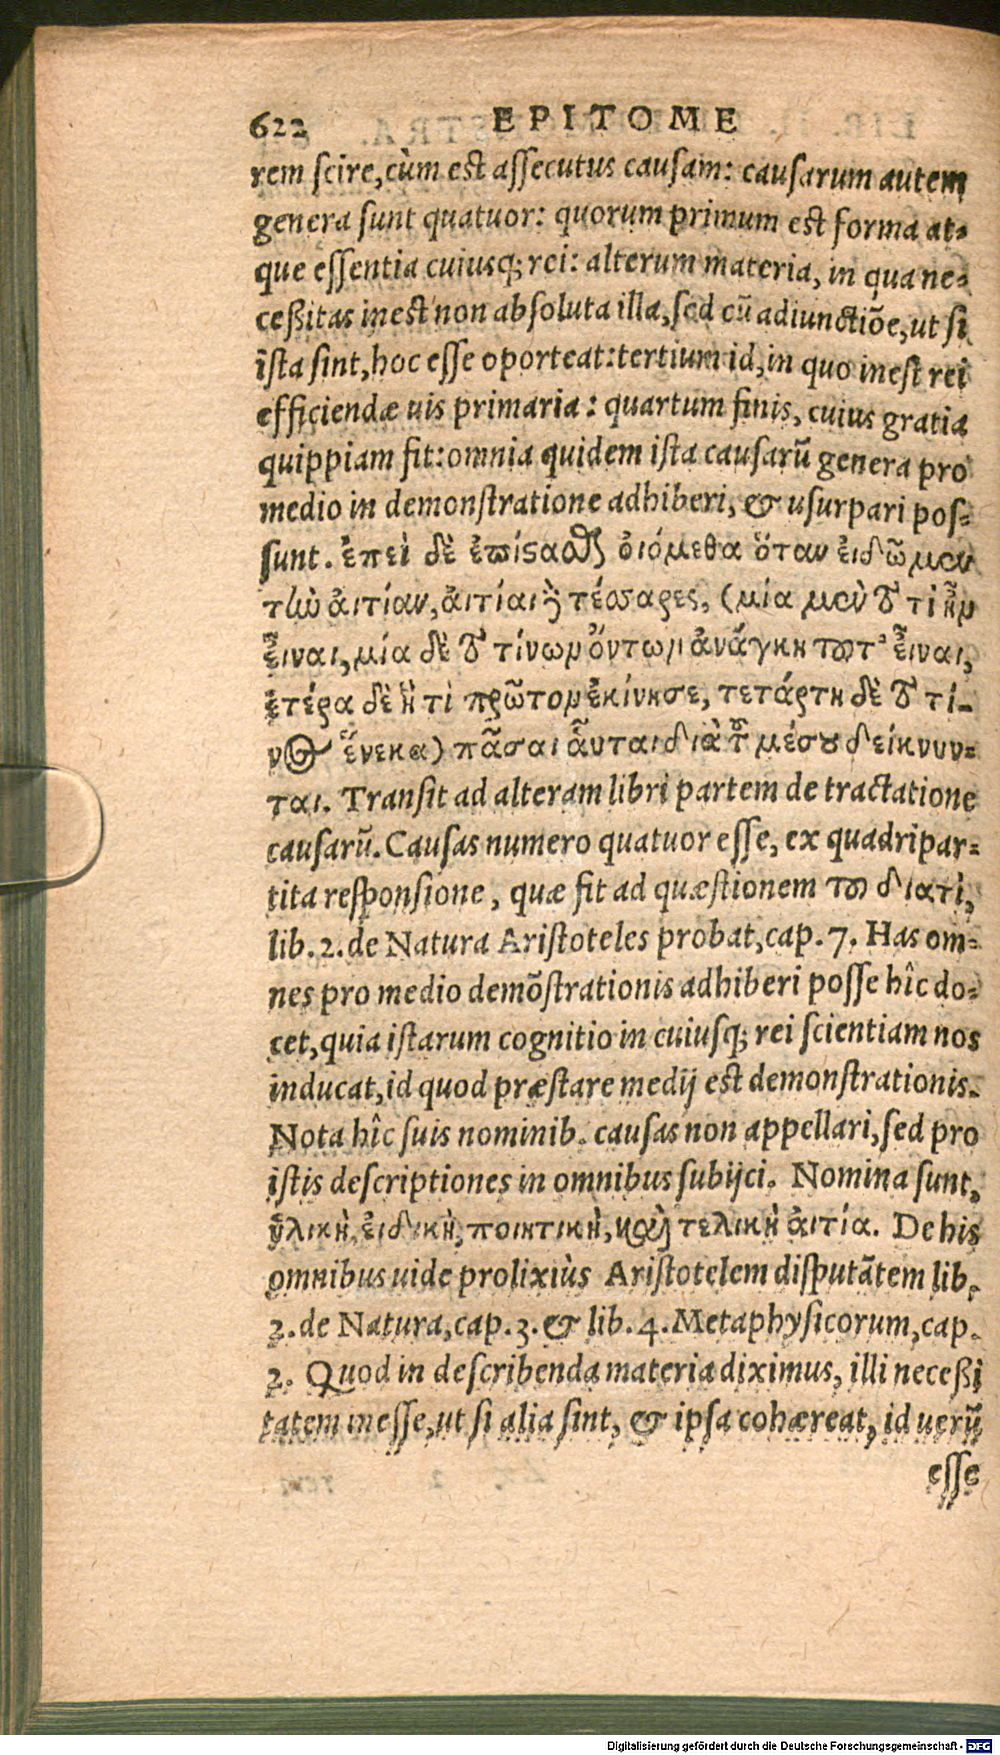 622 EPITOME
rem scire, cùm est assecutus causam: causarum autem
genera sunt quatuor: quorum primum est forma at-
que essentia cuiusq; rei: alterum materia, in qua ne-
ceßitas inest non absoluta illa, sed cū adiunctiōe, ut si
ista sint, hoc esse oporteat: tertium id, in quo inest rei
efficiendæ uis primaria: quartum finis, cuius gratia
quippiam fit: omnia quidem ista causarū genera pro
medio in demonstratione adhiberi, & usurpari pos-
sunt. ἐπεὶ δὲ ἐπίςαϑζ ὀιόμεθα ὅταν ἐιδῶμεν
τἠὼ ἀιτίαν, ἀιτίαι ἢ τέσσαρες, (μία μὲν τὸ τὶ ἦν
ἐ͂ιναι, μία δὲ τὸ τίνων ὄντων ἀνάγκη τοῦτ' ἐ͂ιναι,
ἑτέρα δὲ ἥ τὶ πρῶτον ἐκίνησε, τετάρτη δὲ τὸ τί-
νος ἕνεκα) πᾶσαι ἇυται διὰ τοῦ μέσου δείκνυν-
ται. Transit ad alteram libri partem de tractatione
causarū. Causas numero quatuor esse, ex quadripar-
tita responsione, quæ fit ad quæstionem τὸ διατὶ,
lib. 2. de Natura Aristoteles probat, cap. 7. Has om-
nes pro medio demōstrationis adhiberi posse hîc do-
cet, quia istarum cognitio in cuiusq; rei scientiam nos
inducat, id quod præstare medij est demonstrationis.
Nota hîc suis nominib. causas non appellari, sed pro
istis descriptiones in omnibus subijci. Nomina sunt,
ὑλικὴ, ἐιδικὴ, ποιητικὴ, καὶ τελικὴ ἀιτία. De his
omnibus uide prolixiùs Aristotelem disputātem lib.
2. de Natura, cap. 3. & lib. 4. Metaphysicorum, cap.
2. Quod in describenda materia diximus, illi neceßi
tatem inesse, ut si alia sint, & ipsa cohæreat, id uerū
esse
Digitalisierung gefördert durch die Deutsche Forschungsgemeinschaft - DFG